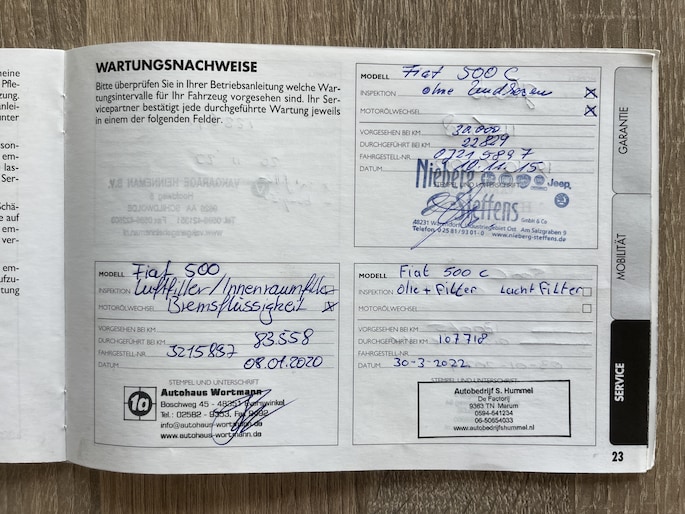 WARTUNGSNACHWEISE
Bitte überprüfen Sie in Ihrer Betriebsanleitung welche War-
tungsintervalle für Ihr Fahrzeug vorgesehen sind. Ihr Ser-
vicepartner bestätigt jede durchgeführte Wartung jeweils
in einem der folgenden Felder.
MODELL Fiat 500 C
INSPEKTION ohne
MOTORÖLWECHSEL
VORGESEHEN BEI KM 30.000
DURCHGEFÜHRT BEI KM 22829
FAHRGESTELL-NR. 07215897
DATUM 10.11.15
STEMPEL UND UNTERSCHRIFT
Nieberg
Jeep
Steffens GmbH & Co
48231 Warendorf Industriegebiet Ost Am Salzgraben 9
Telefon 0 25 81/93 01-0 www.nieberg-steffens.de
MODELL Fiat 500
INSPEKTION Luftfilter/Innenraumfilter
MOTORÖLWECHSEL Bremsflüssigkeit
VORGESEHEN BEI KM
DURCHGEFÜHRT BEI KM 83.558
FAHRGESTELL-NR. 3215897
DATUM 08.01.2020
STEMPEL UND UNTERSCHRIFT
Autohaus Wortmann
Boschweg 45 - 48351 Everswinkel
Tel.: 02582 - 9353, Fax
info@autohaus-wortmann.de
www.autohaus-wortmann.de
MODELL Fiat 500 c
INSPEKTION Olie + Filter Lucht Filter
MOTORÖLWECHSEL
VORGESEHEN BEI KM
DURCHGEFÜHRT BEI KM 107718
FAHRGESTELL-NR.
DATUM 30-3-2022
STEMPEL UND UNTERSCHRIFT
Autobedrijf S. Hummel
De Factorij
9363 TN Marum
0594-641234
06-50654033
www.autobedrijfshummel.nl
GARANTIE
MOBILITÄT
SERVICE
23